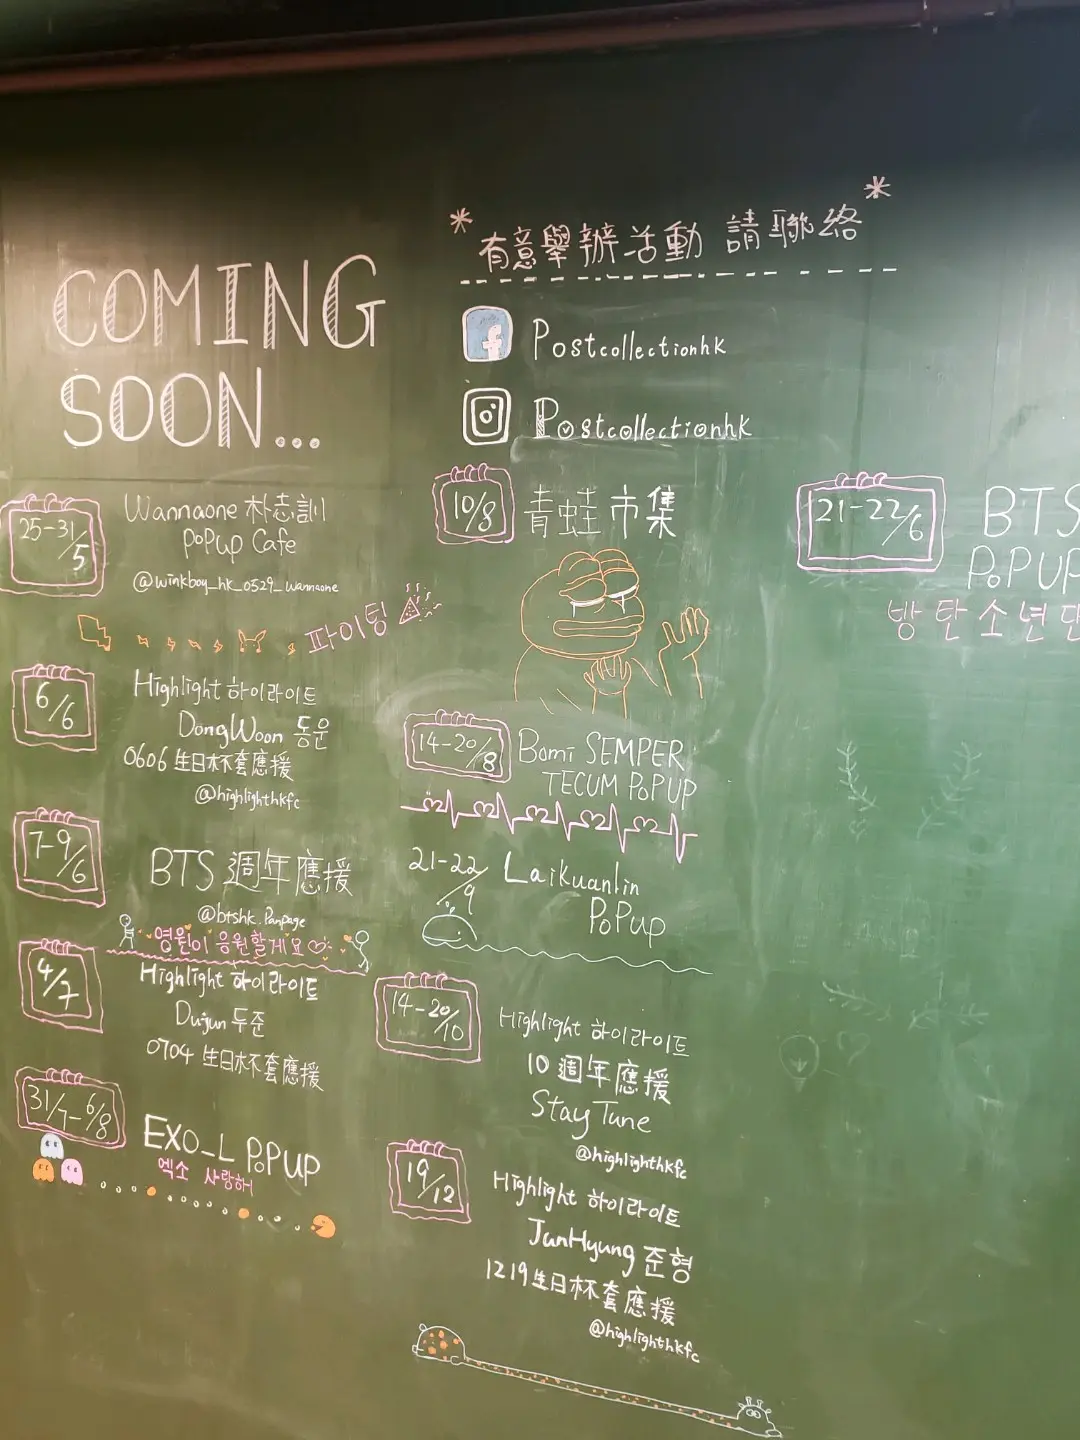 COMING
SOON...
*有意舉辦活動 請聯絡*
Postcollectionhk
Postcollectionhk
25-31/5
Wannaone 朴志訓
PoPup Cafe
@winkboy_hk_0529_wannaone
파이팅
6/6
Highlight 하이라이트
DongWoon 동운
0606 生日杯套應援
@highlighthkfc
7-9/6
BTS 週年應援
@btshk.Fanpage
영원이 응원할게요
4/7
Highlight 하이라이트
Dujun 두준
0704 生日杯套應援
31/7-6/8
EXO_L PoPUP
엑소 사랑해
10/8
青蛙市集
14-20/8
Bomi SEMPER
TECUM PoPUP
21-22/9
Laikuanlin
PoPup
14-20/10
Highlight 하이라이트
10週年應援
Stay Tune
@highlighthkfc
19/12
Highlight 하이라이트
JunHyung 준형
1219生日杯套應援
@highlighthkfc
21-22/6
BTS
PoPUP
방탄소년단